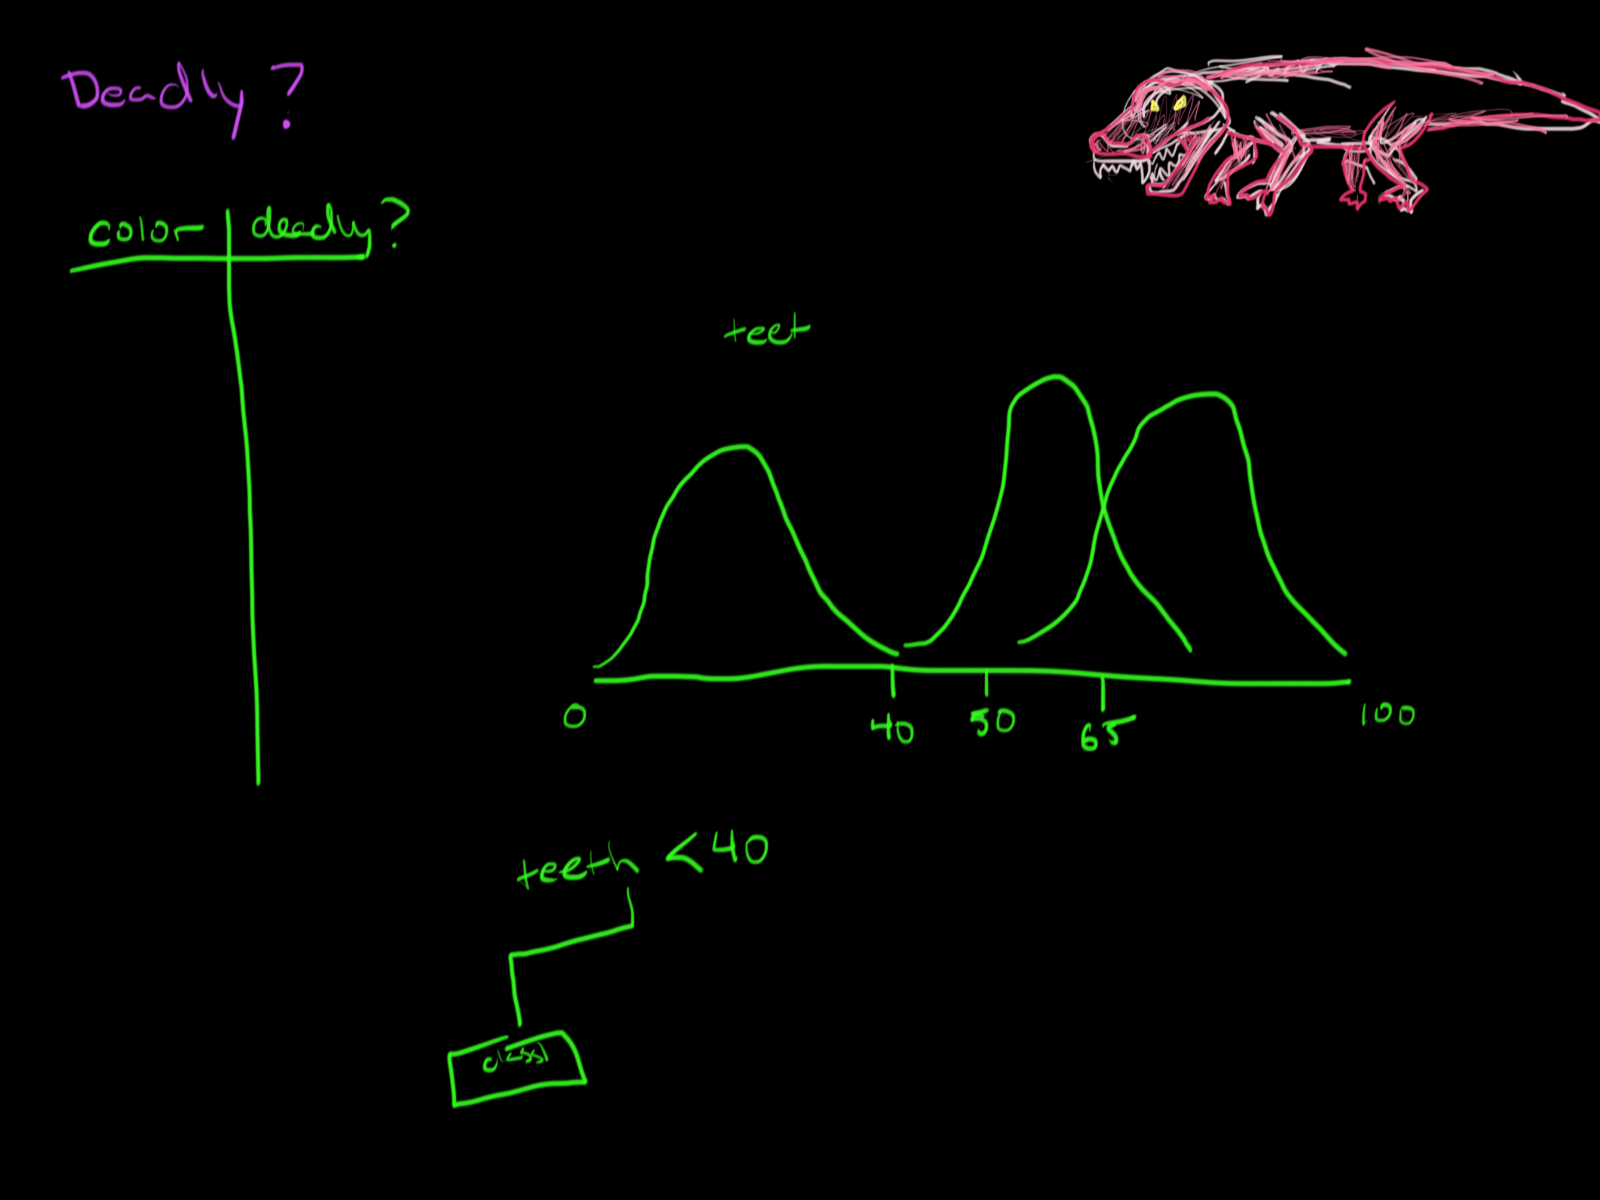 Deadly?
color deadly?
teet
0 40 50 65 100
teeth < 40
class1